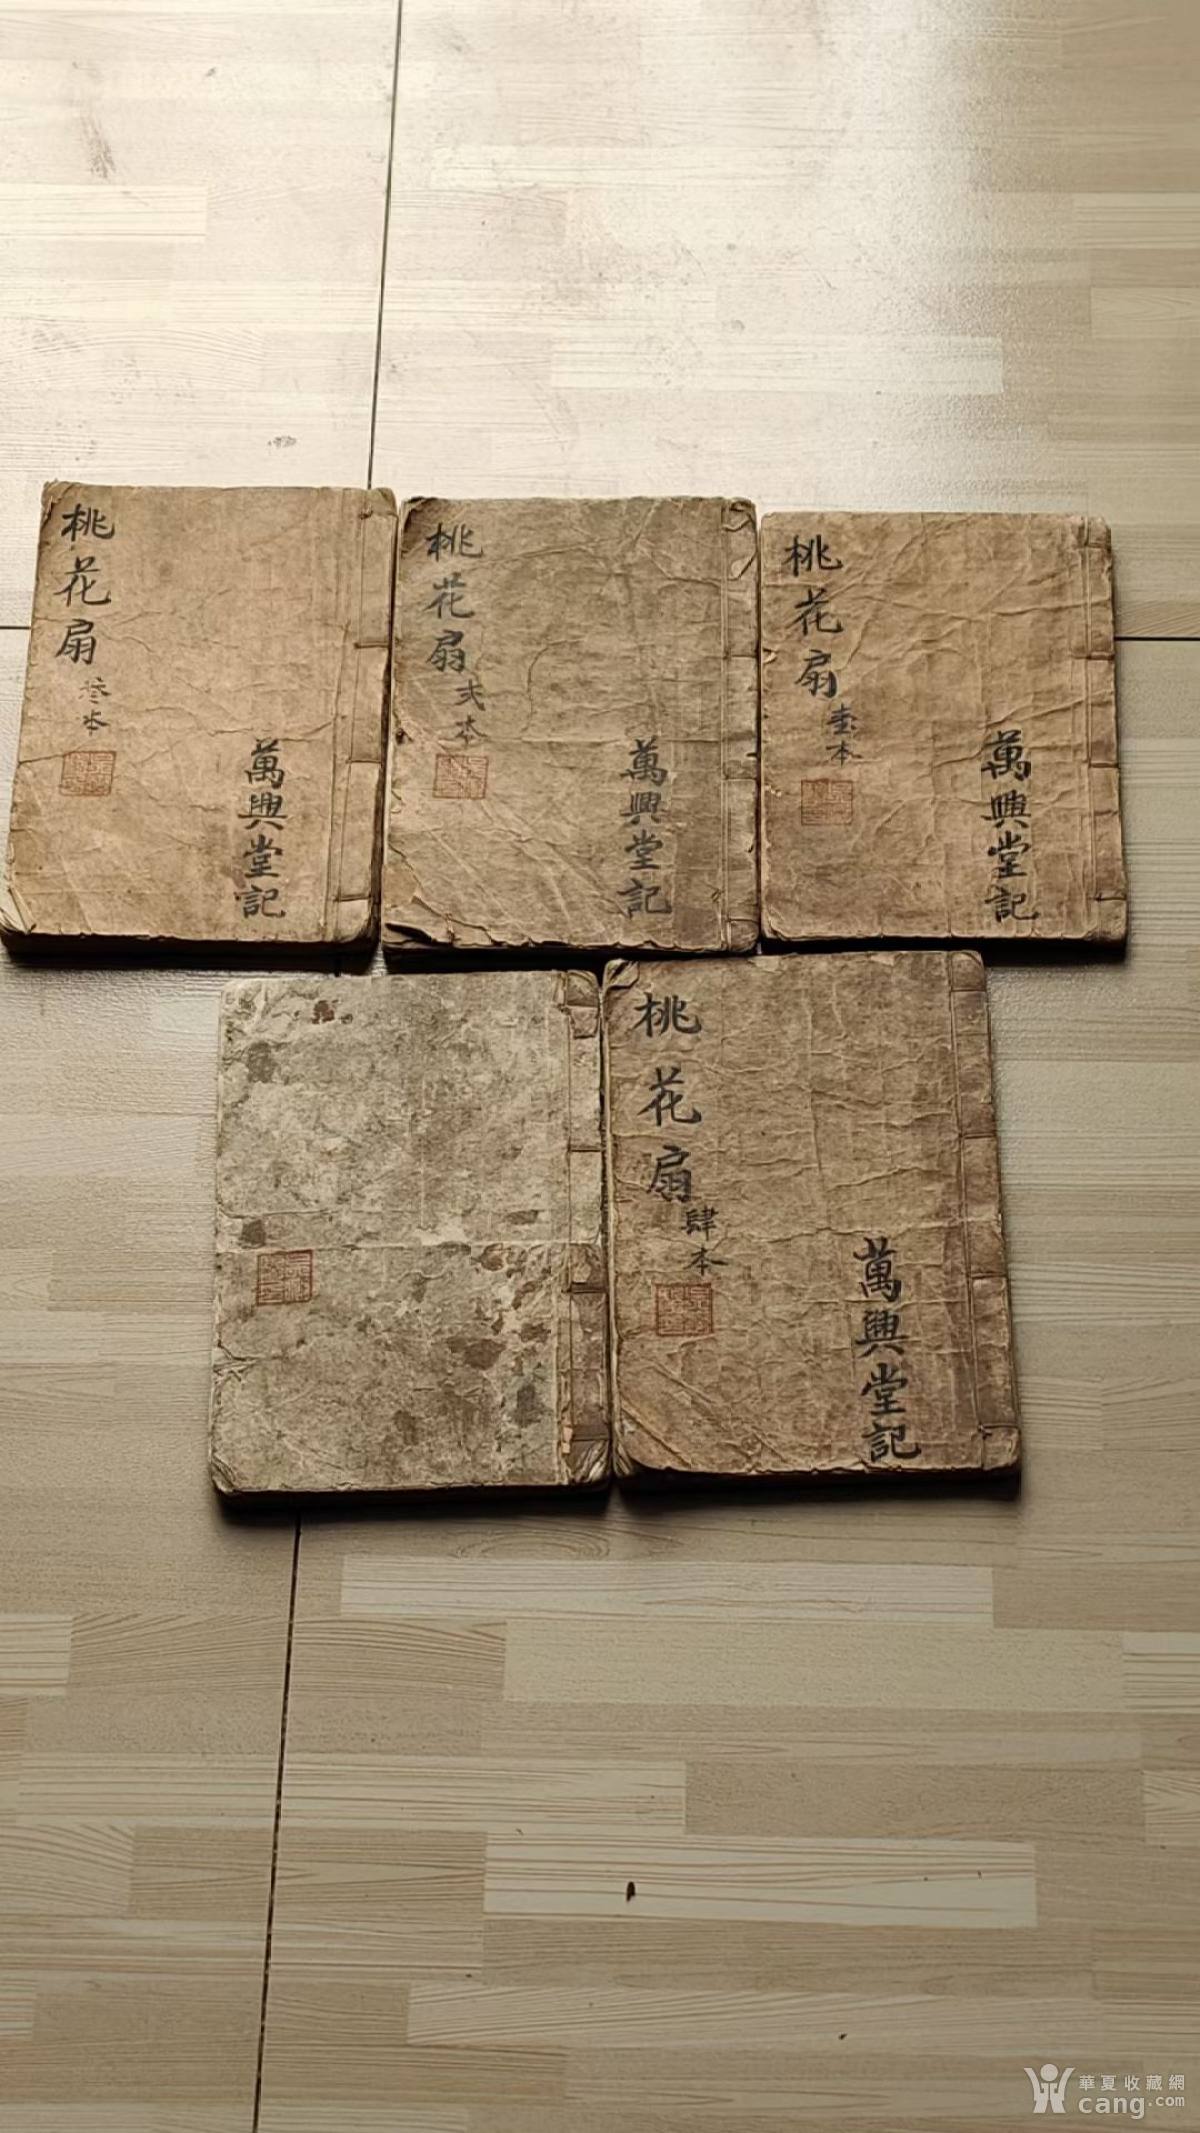 桃花扇
叁本
萬興堂記
桃花扇
弍本
萬興堂記
桃花扇
壹本
萬興堂記
桃花扇
肆本
萬興堂記
華夏收藏網
cang.com